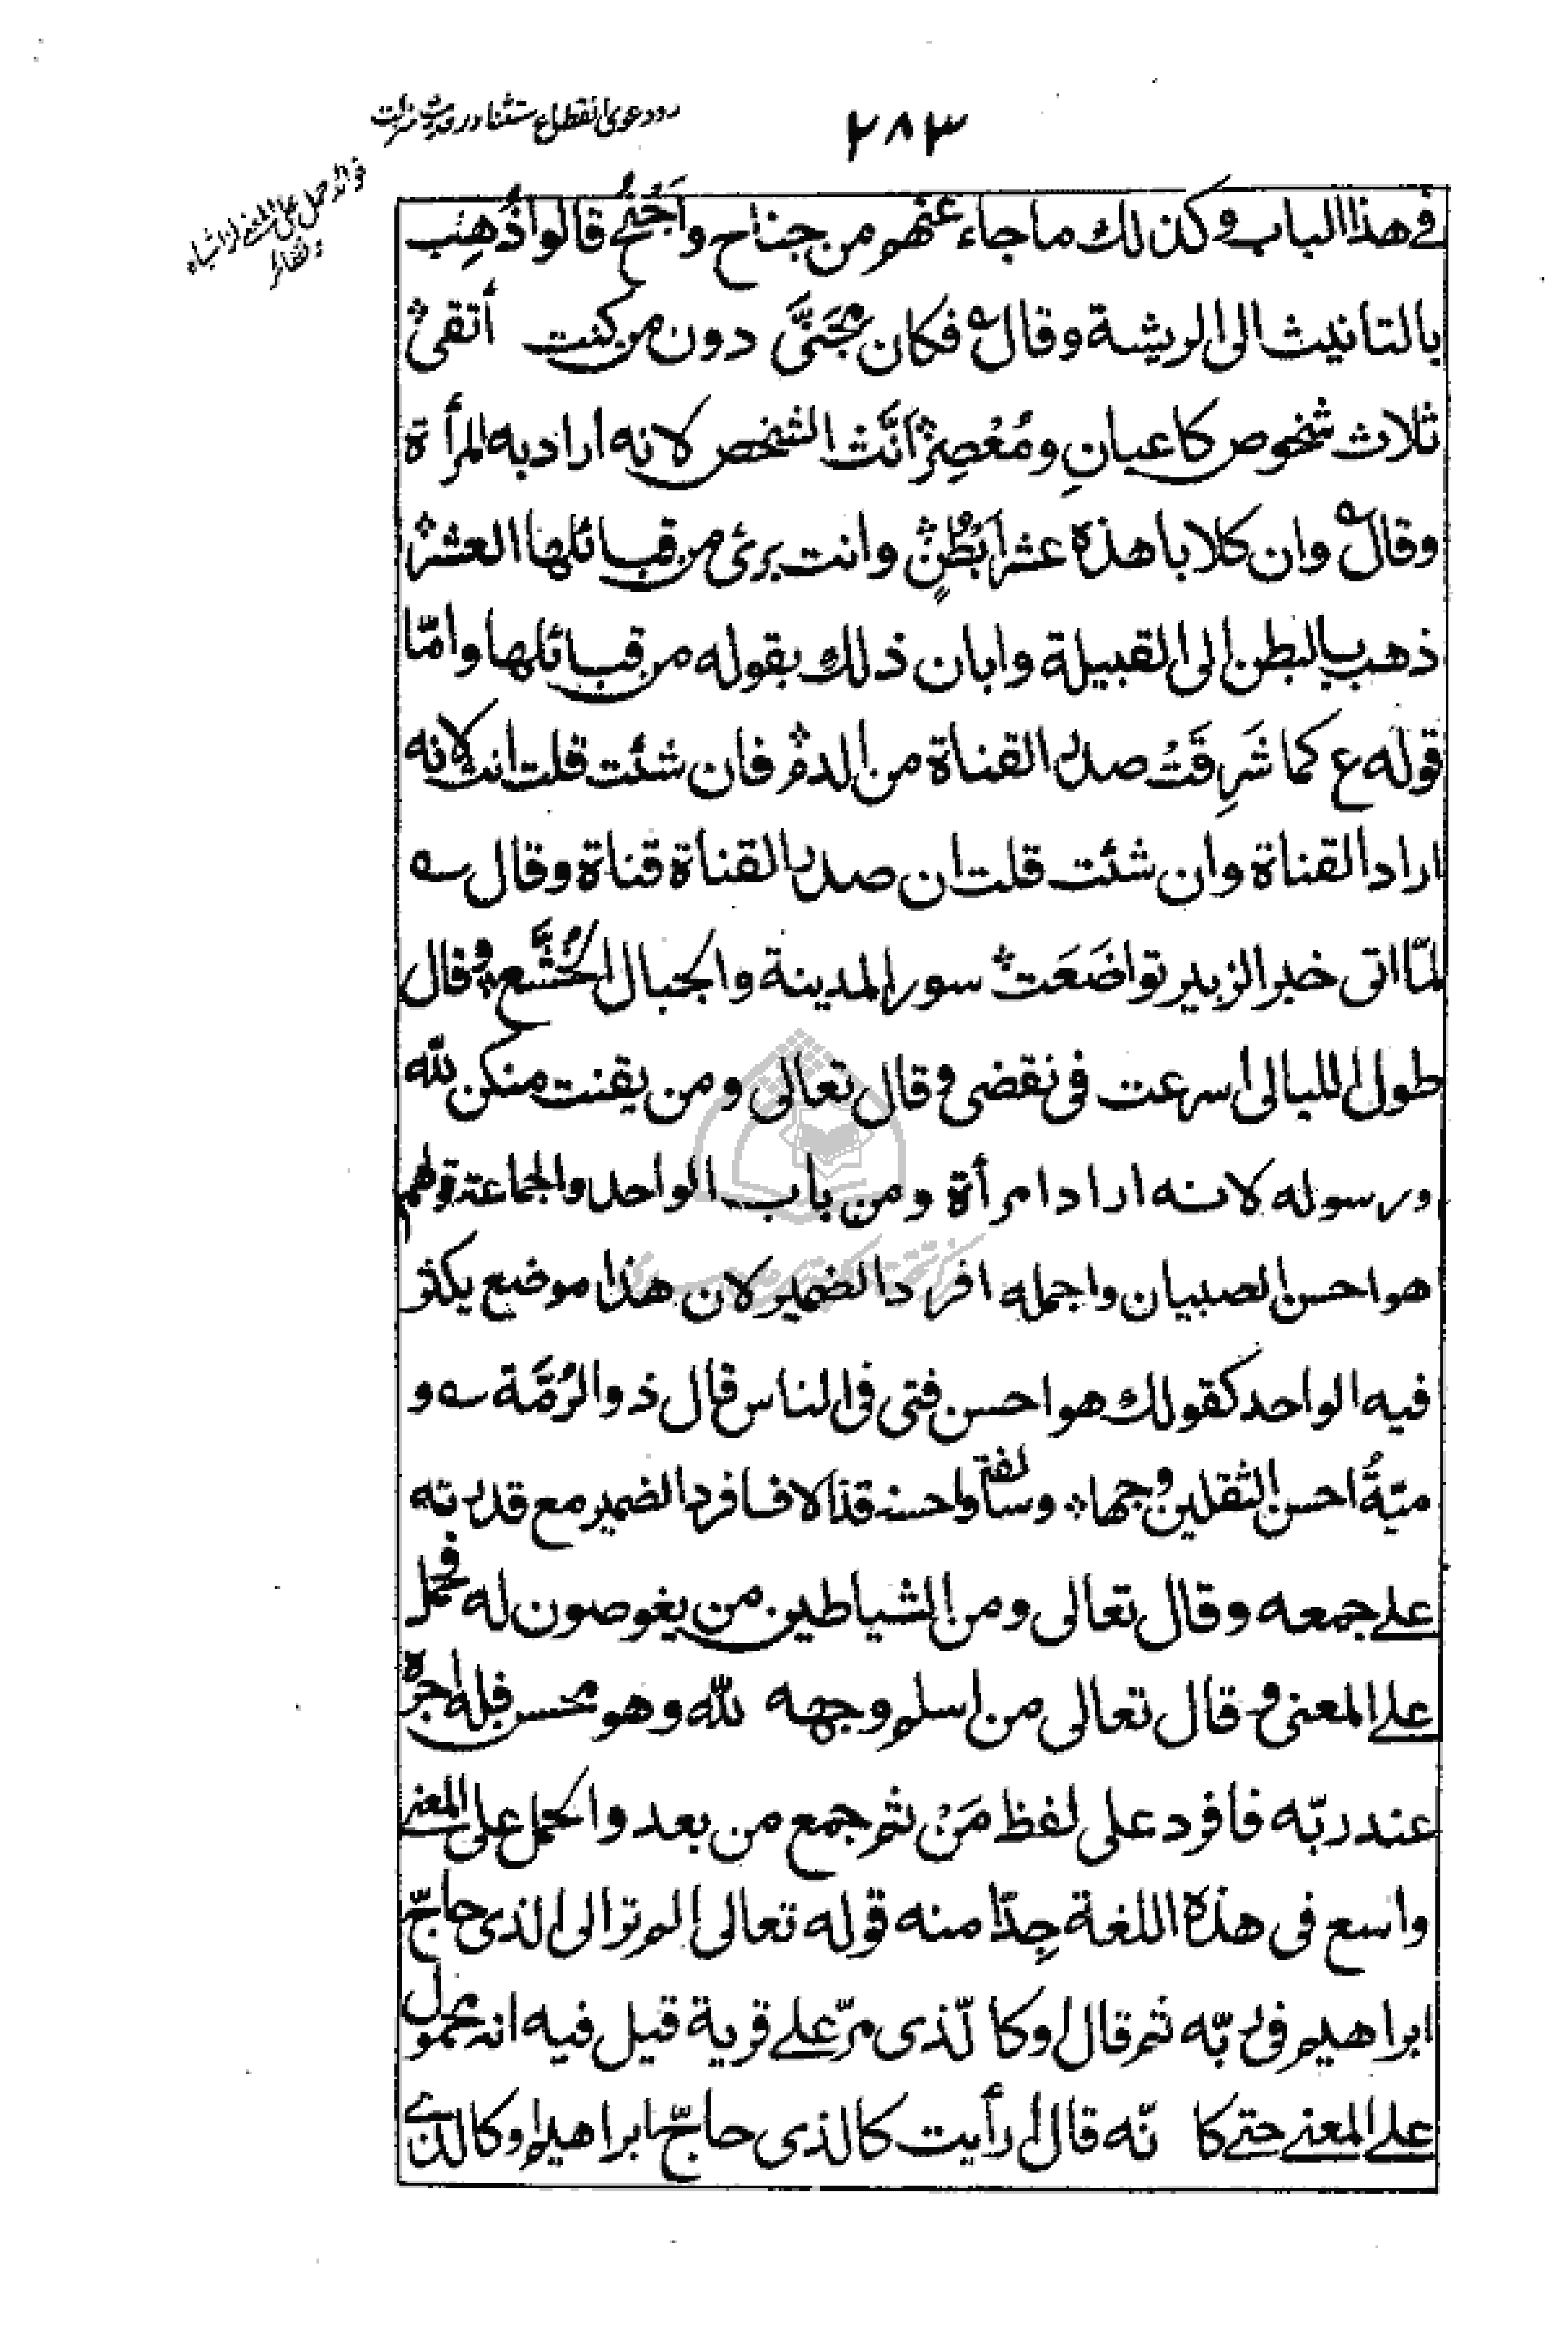 ۲۸۳
رد دعوی انقطاع استثنا در حدیث منزلت
فوائد حمل علی المعنی از اشباه
و نظائر
فی هذا الباب وکذلك ما جاء عنهم من جناح واَجْنُح قالوا ذُهِب
بالتانیث الی الریشة وقال ؎ فکان مِجَنّی دون من کنت أتقی ؞
ثلاث شخوص کاعبانِ ومُعْصِر ؞ اَنَّث الشخص لانه اراد به المرأة
وقال ؎ وان کلابا هذه عشر اَبْطُنٍ ؞ وانت بریٔ من قبائلها العشر ؞
ذهب بالبطن الی القبیلة وابان ذلك بقوله من قبائلها وامّا
قوله ع کما شَرِقَتْ صدر القناة من الدم ؞ فان شئت قلت انث لانه
اراد القناة وان شئت قلت ان صدر القناة قناة وقال ؎
لمّا اتی خبر الزبیر تواضَعَت ؞ سور المدینة والجبال الخُشَّع ؞ وقال
طول اللیالی اسرعت فی نقضی وقال تعالی ومن یقنت منکن لله
ورسوله لانه اراد امرأة ومن باب الواحد والجماعة قولهم
هو احسن الصبیان واجمله افرد الضمیر لان هذا موضع یکثر
فیه الواحد کقولك هو احسن فتی فی الناس قال ذو الرُمَّة ؎ و
میّةُ احسن الثقلین وجها ؞ وسالفة واحسنه قذالا فافرد الضمیر مع قدرته
علی جمعه وقال تعالی ومن الشیاطین من یغوصون له فحمل
علی المعنی وقال تعالی من اسلم وجهه لله وهو محسن فله اجره
عند ربّه فافرد علی لفظ مَنْ ثم جمع من بعد والحمل علی المعنی
واسع فی هذه اللغة جِدّا منه قوله تعالی الم تر الی الذی حاجّ
ابراهیم فی ربّه ثم قال او کالّذی مرّ علی قریة قیل فیه انه محمول
علی المعنی حتی کا نّه قال ارأیت کالذی حاجّ ابراهیم او کالذی